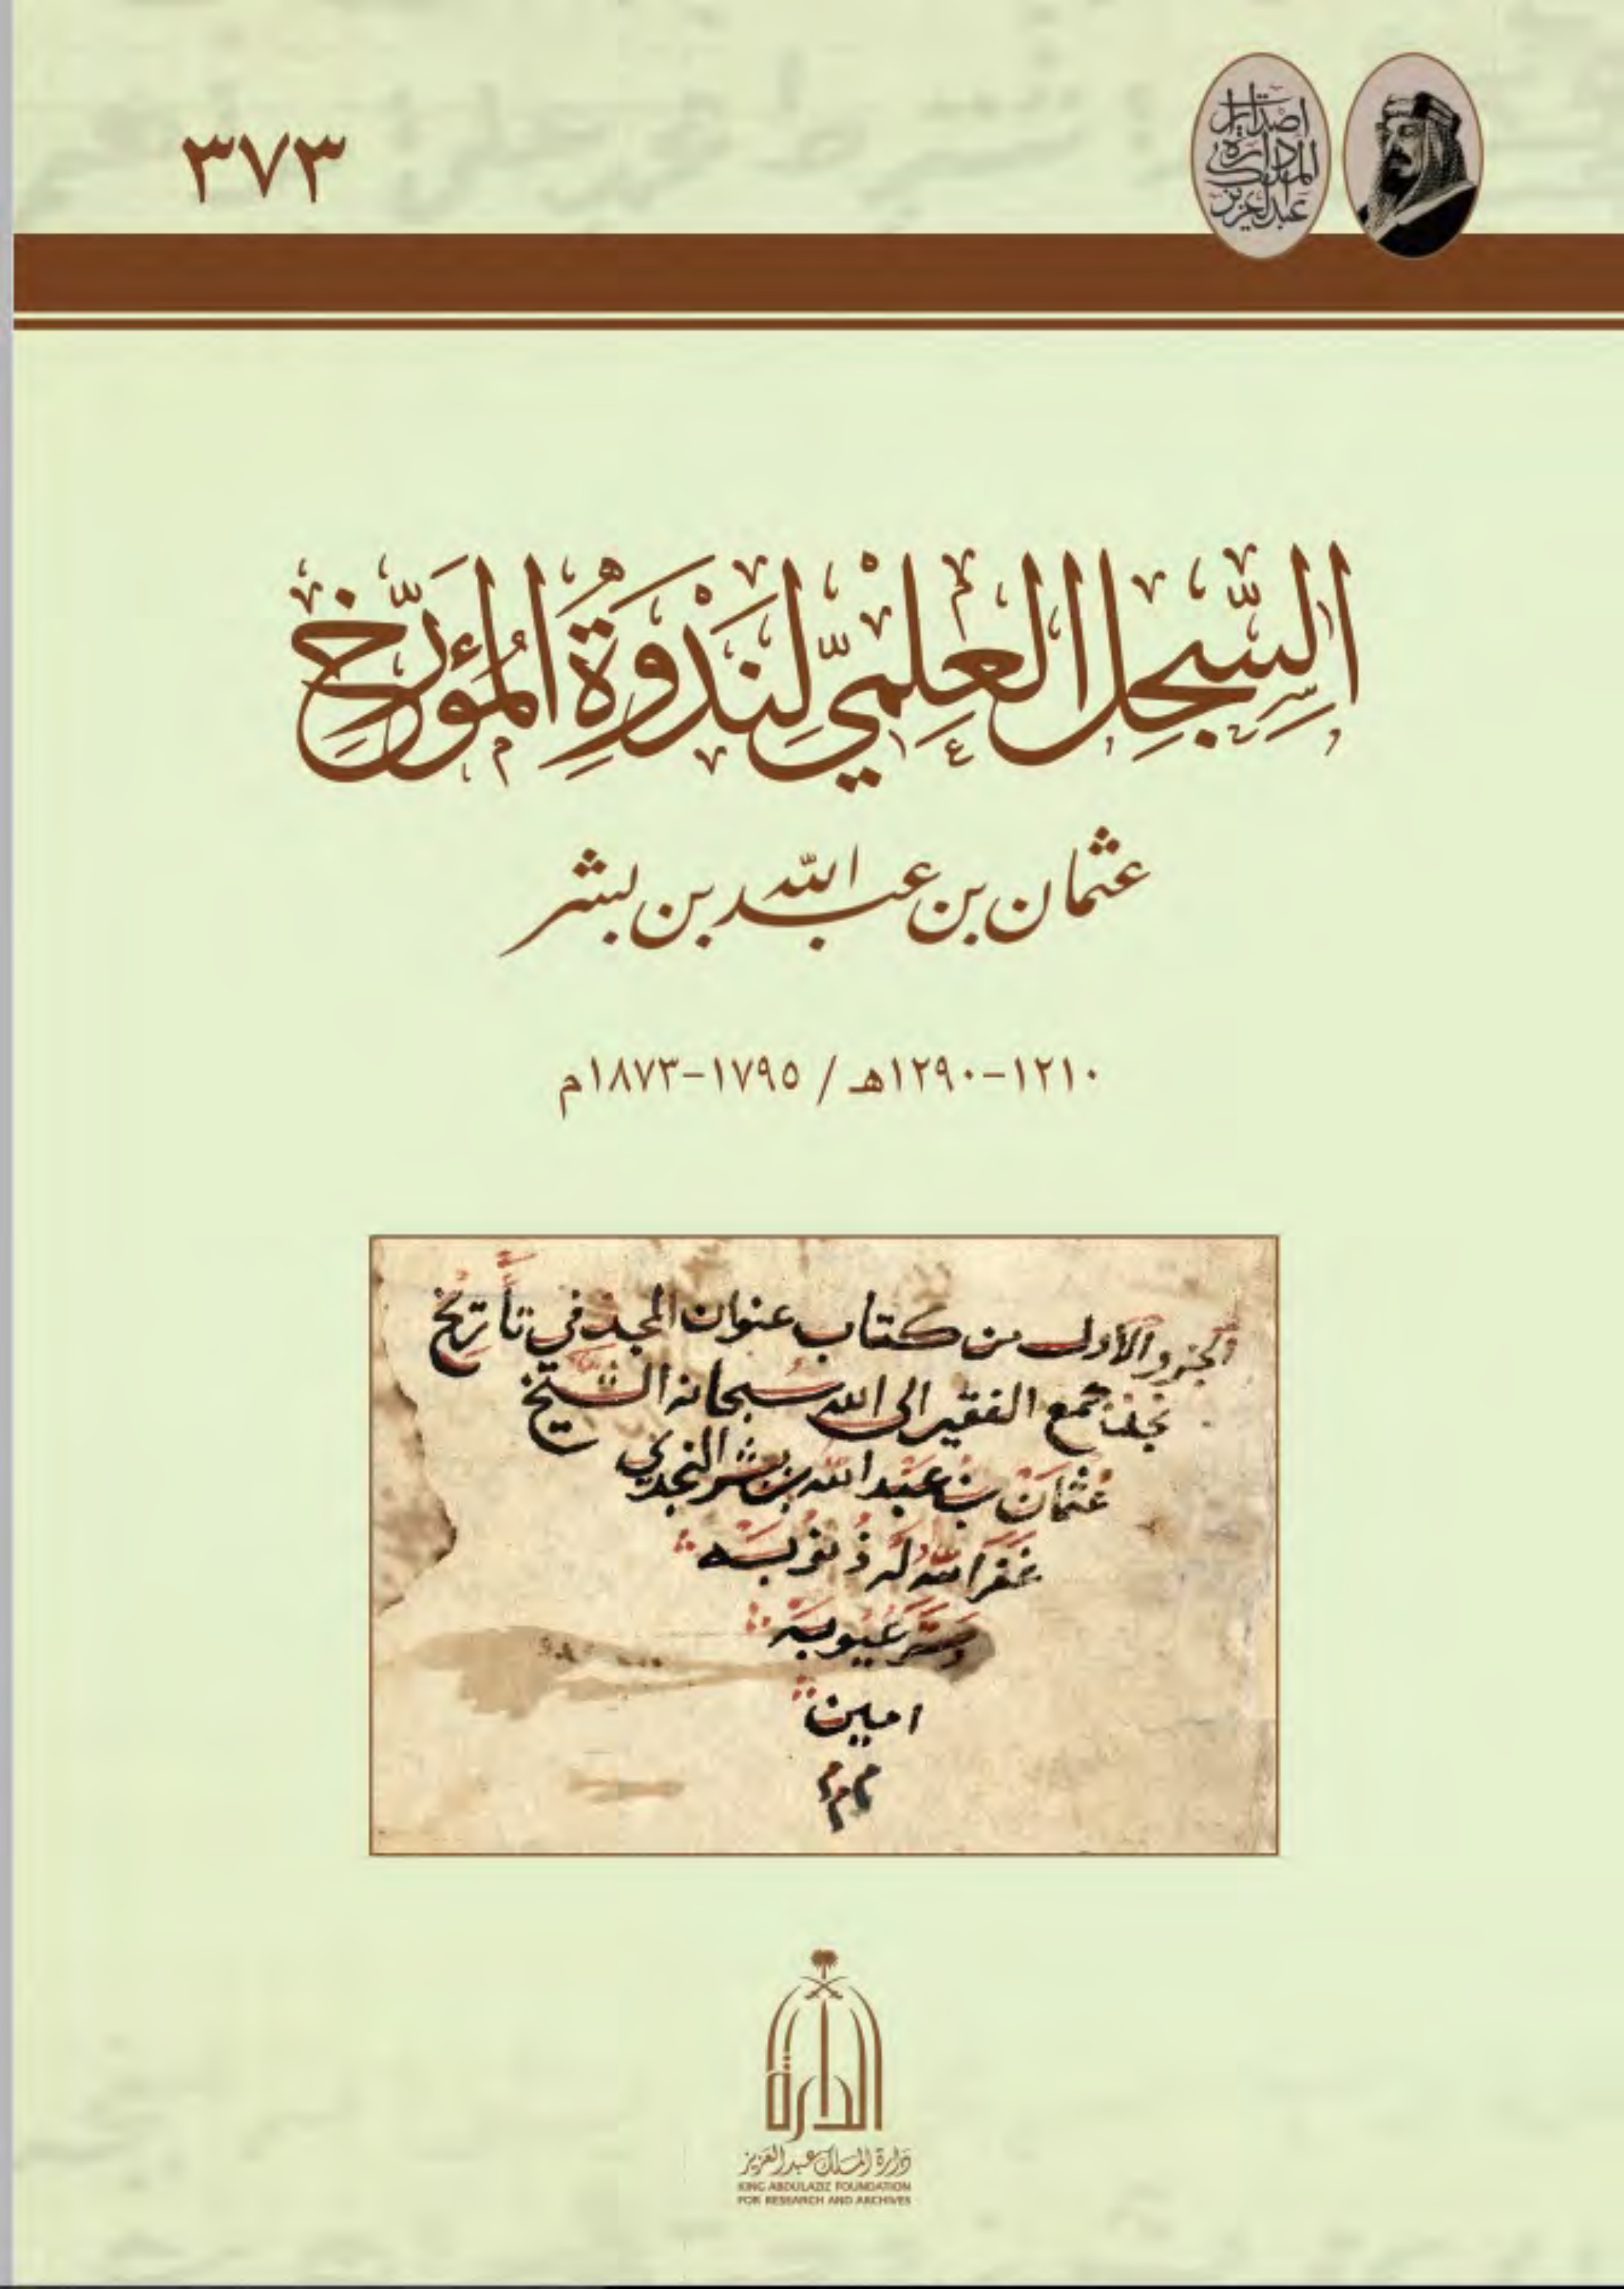 ٣٧٣
إصدارات
دارة
الملك
عبدالعزيز
السِّجل العِلميّ لنَدْوَةِ المُؤرِّخ
عثمان بن عبد الله بن بشر
١٢١٠-١٢٩٠هـ / ١٧٩٥-١٨٧٣م
الجزو الأول من كتاب عنوان المجد في تأريخ
نجد جمع الفقير الى الله سبحانه الشيخ
عُثمان بن عبد الله بن بشر النجدي
غفر الله له ذنوبه
وستر عيوبه
امين
الدارة
دارة الملك عبدالعزيز
KING ABDULAZIZ FOUNDATION
FOR RESEARCH AND ARCHIVES